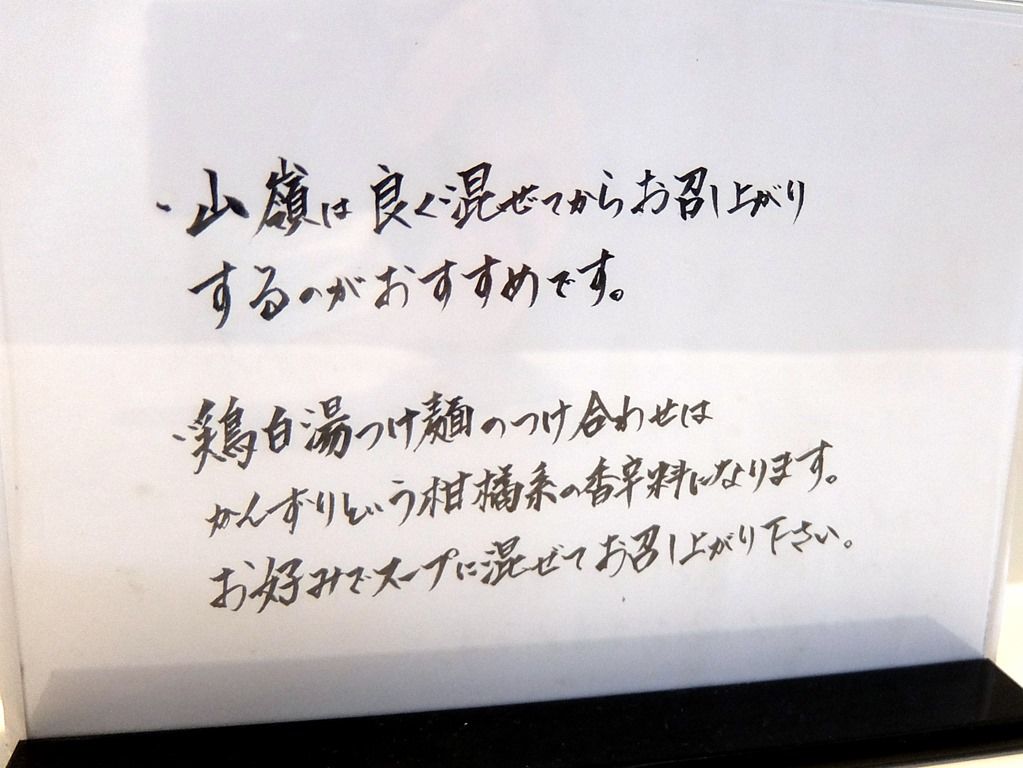 ・山嶺は良く混ぜてからお召し上がり
するのがおすすめです。
・鶏白湯つけ麺のつけ合わせは
かんずりという柑橘系の香辛料になります。
お好みでスープに混ぜてお召し上がり下さい。